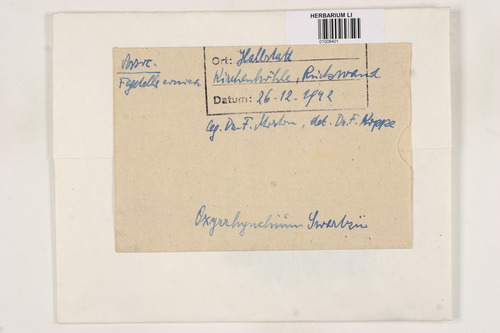 HERBARIUM LI
01009401
Assoc.
Fegatella conica
Ort: Hallstatt
Kirchenhöhle, Rückwand
Datum: 26.12.1942
leg. Dr. F. Morton, det. Dr. F. Koppe
Oxyrrhynchium Swartzii